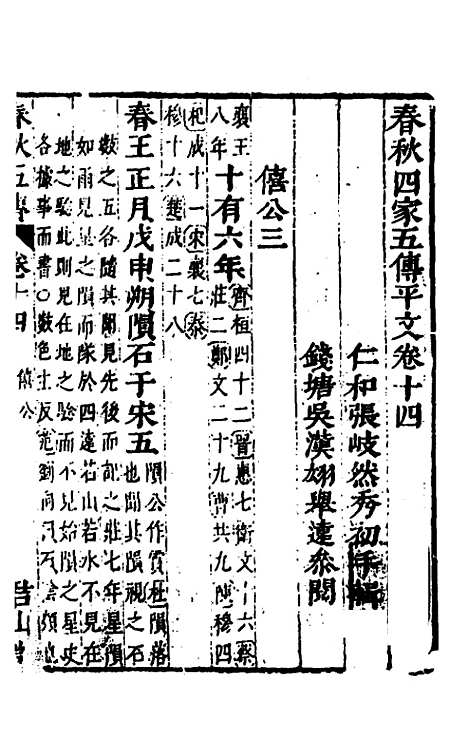 春秋四家五傳平文卷十四
仁和張岐然秀初手輯
錢塘吳漢翊舉遠叅閱
僖公三
襄王
八年
十有六年
齊桓四十二晉惠七衛文十六蔡
莊二鄭文二十九曹共九陳穆四
杞成十一宋襄七秦
穆十六楚成二十八
春王正月戊申朔隕石于宋五
隕公作霣杜隕落
也聞其隕視之石
數之五各隨其聞見先後而記之莊七年星隕
如雨見星之隕而隊於四遠若山若水不見在
地之驗此則見在地之驗而不見始隕之星史
各據事而書○數色主反劉向曰石陰類也
春秋五傳 卷十四 僖公